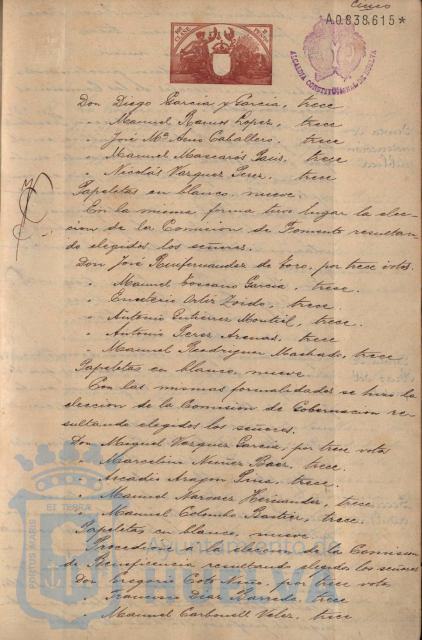 Cinco
A0.838.615*
ALCALDIA CONSTITUCIONAL DE HUELVA
Don Diego Garcia y Garcia, trece
" Manuel Ramos Lopez, trece
" José Mª Amo Caballero, trece
" Manuel Mascarós trece
" Nicolás Vazquez Perez, trece
Papeletas en blanco, nueve.
En la misma forma tuvo lugar la elec-
cion de la Comision de Fomento resultan-
do elegidos los señores.
Don José de Toro, por trece votos.
" Manuel Toscano Garcia, trece.
" Emeterio Ortiz Toledo, trece.
" Antonio Gutierrez Montiel, trece.
" Antonio Perez Arenas, trece.
" Manuel Rodriguez Machado, trece
Papeletas en blanco, nueve
Con las mismas formalidades se hizo la
eleccion de la Comision de Gobernacion re-
sultando elegidos los señores.
Don Miguel Vazquez Garcia, por trece votos
" Marcelino Nuñez Baez, trece.
" Arcadio Aragon trece.
" Manuel Narvaez Hernandez, trece
" Manuel Colombo trece.
Papeletas en blanco, nueve
Procedióse á la eleccion de la Comision
de Beneficencia resultando elegidos los señores
Don Gregorio Nuno, por trece votos
" Francisco Diaz trece
" Manuel Carbonell Velez, trece
PORTUS MARIS ET TERRAE
Ayuntamiento de
HUELVA